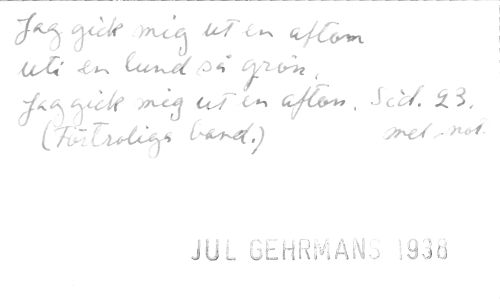 Jag gick mig ut en afton
uti en lund så grön.
Jag gick mig ut en afton. Sid. 23.
(Förtroliga band.) mel. not.
JUL GEHRMANS 1938